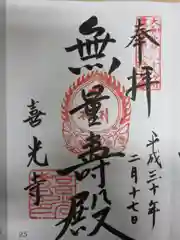 奉拝
平成三十年
二月十七日
無量壽殿
喜光寺